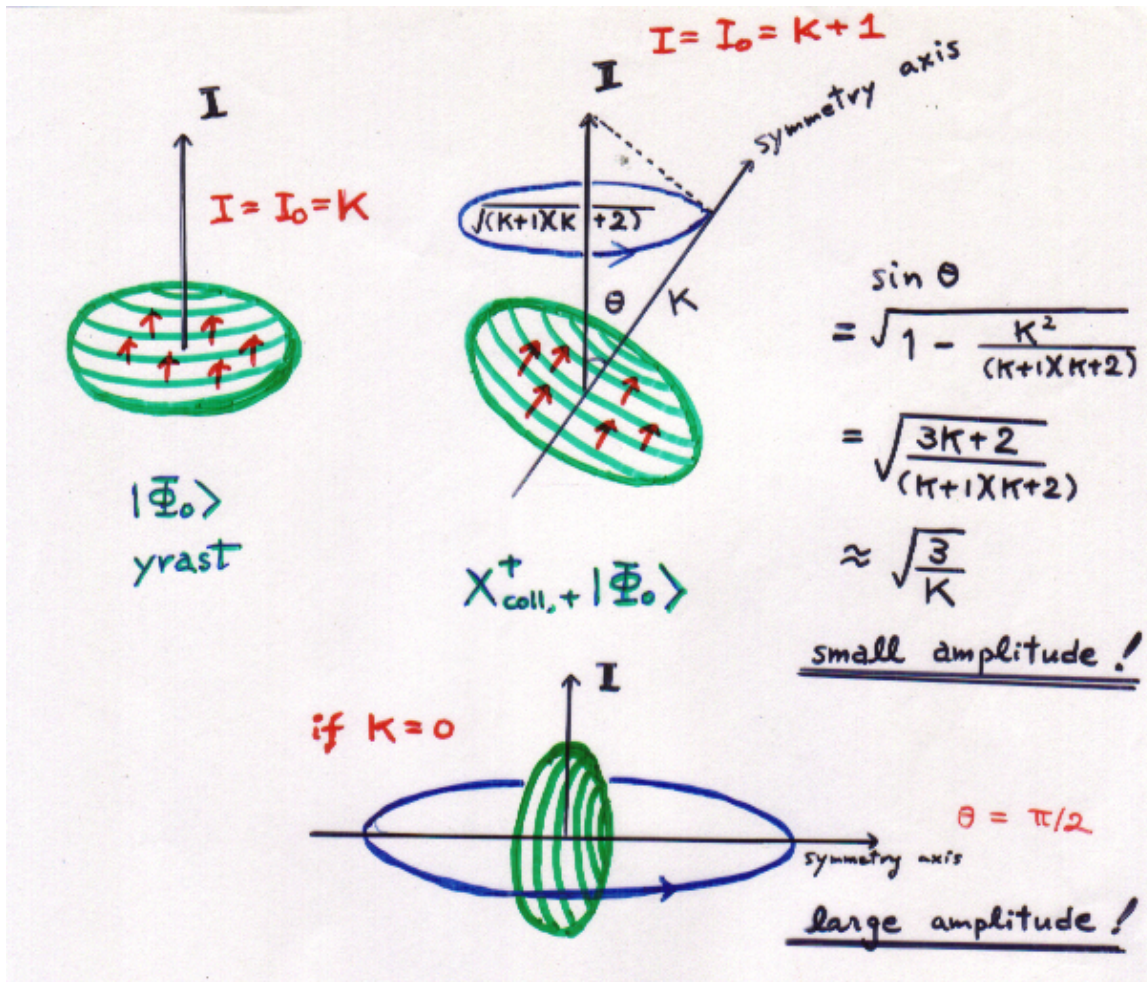 I
I = I₀ = K
|Φ₀⟩
yrast
I = I₀ = K+1
I
symmetry axis
√(K+1)(K+2)
θ
K
X⁺coll.,+ |Φ₀⟩
sin θ
= √1 - K²/(K+1)(K+2)
= √3K+2/(K+1)(K+2)
≈ √3/K
small amplitude!
if K=0
I
symmetry axis
θ = π/2
large amplitude!